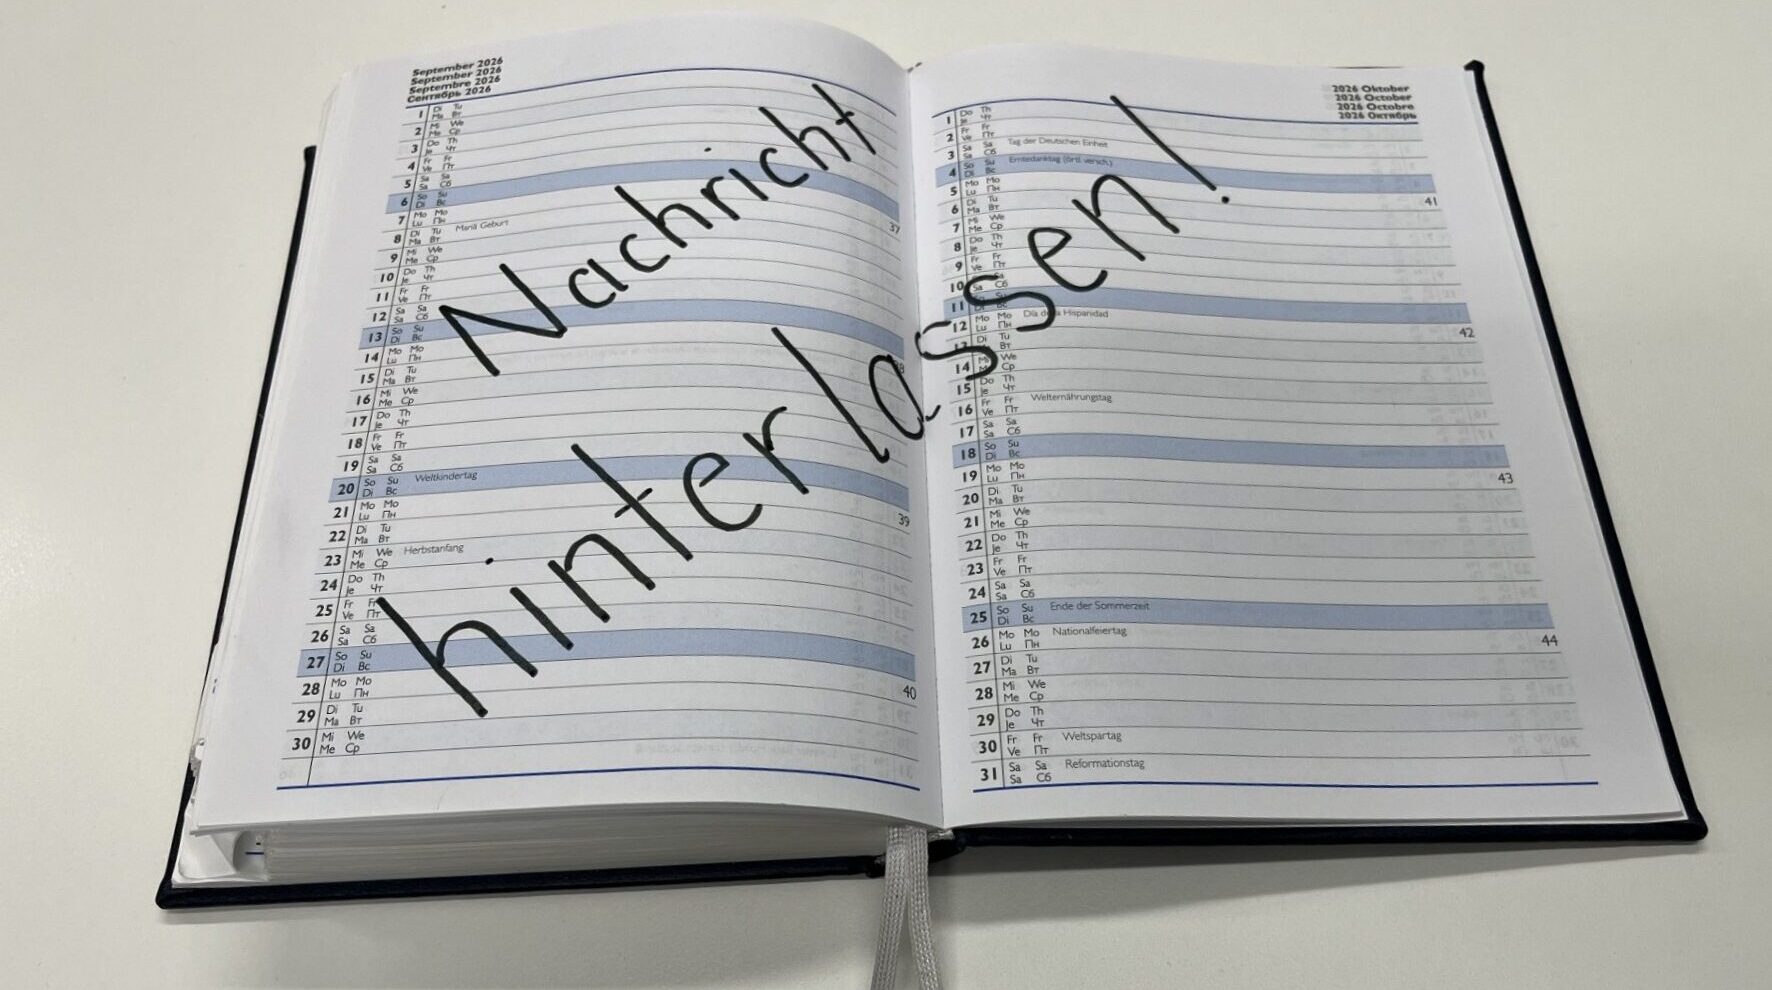 September 2026
September 2026
Septembre 2026
Сентябрь 2026
1 Di Tu
Ma Вт
2 Mi We
Me Ср
3 Do Th
Je Чт
4 Fr Fr
Ve Пт
5 Sa Sa
Sa Сб
6 So Su
Di Вс
7 Mo Mo
Lu Пн
37
8 Di Tu Mariä Geburt
Ma Вт
9 Mi We
Me Ср
10 Do Th
Je Чт
11 Fr Fr
Ve Пт
12 Sa Sa
Sa Сб
13 So Su
Di Вс
14 Mo Mo
Lu Пн
15 Di Tu
Ma Вт
16 Mi We
Me Ср
17 Do Th
Je Чт
18 Fr Fr
Ve Пт
19 Sa Sa
Sa Сб
20 So Su Weltkindertag
Di Вс
21 Mo Mo
Lu Пн
39
22 Di Tu
Ma Вт
23 Mi We Herbstanfang
Me Ср
24 Do Th
Je Чт
25 Fr Fr
Ve Пт
26 Sa Sa
Sa Сб
27 So Su
Di Вс
28 Mo Mo
Lu Пн
40
29 Di Tu
Ma Вт
30 Mi We
Me Ср
Nachricht
hinterlassen!
2026 Oktober
2026 October
2026 Octobre
2026 Октябрь
1 Do Th
Je Чт
2 Fr Fr
Ve Пт
3 Sa Sa Tag der Deutschen Einheit
Sa Сб
4 So Su Erntedanktag (örtl. versch.)
Di Вс
5 Mo Mo
Lu Пн
41
6 Di Tu
Ma Вт
7 Mi We
Me Ср
8 Do Th
Je Чт
9 Fr Fr
Ve Пт
10 Sa Sa
Sa Сб
11 So Su
Di Вс
12 Mo Mo Día de la Hispanidad
Lu Пн
42
13 Di Tu
Вт
14 Mi We
Me Ср
15 Do Th
Je Чт
16 Fr Fr Welternährungstag
Ve Пт
17 Sa Sa
Sa Сб
18 So Su
Di Вс
19 Mo Mo
Lu Пн
43
20 Di Tu
Ma Вт
21 Mi We
Me Ср
22 Do Th
Je Чт
23 Fr Fr
Ve Пт
24 Sa Sa
Sa Сб
25 So Su Ende der Sommerzeit
Di Вс
26 Mo Mo Nationalfeiertag
Lu Пн
44
27 Di Tu
Ma Вт
28 Mi We
Me Ср
29 Do Th
Je Чт
30 Fr Fr Weltspartag
Ve Пт
31 Sa Sa Reformationstag
Sa Сб